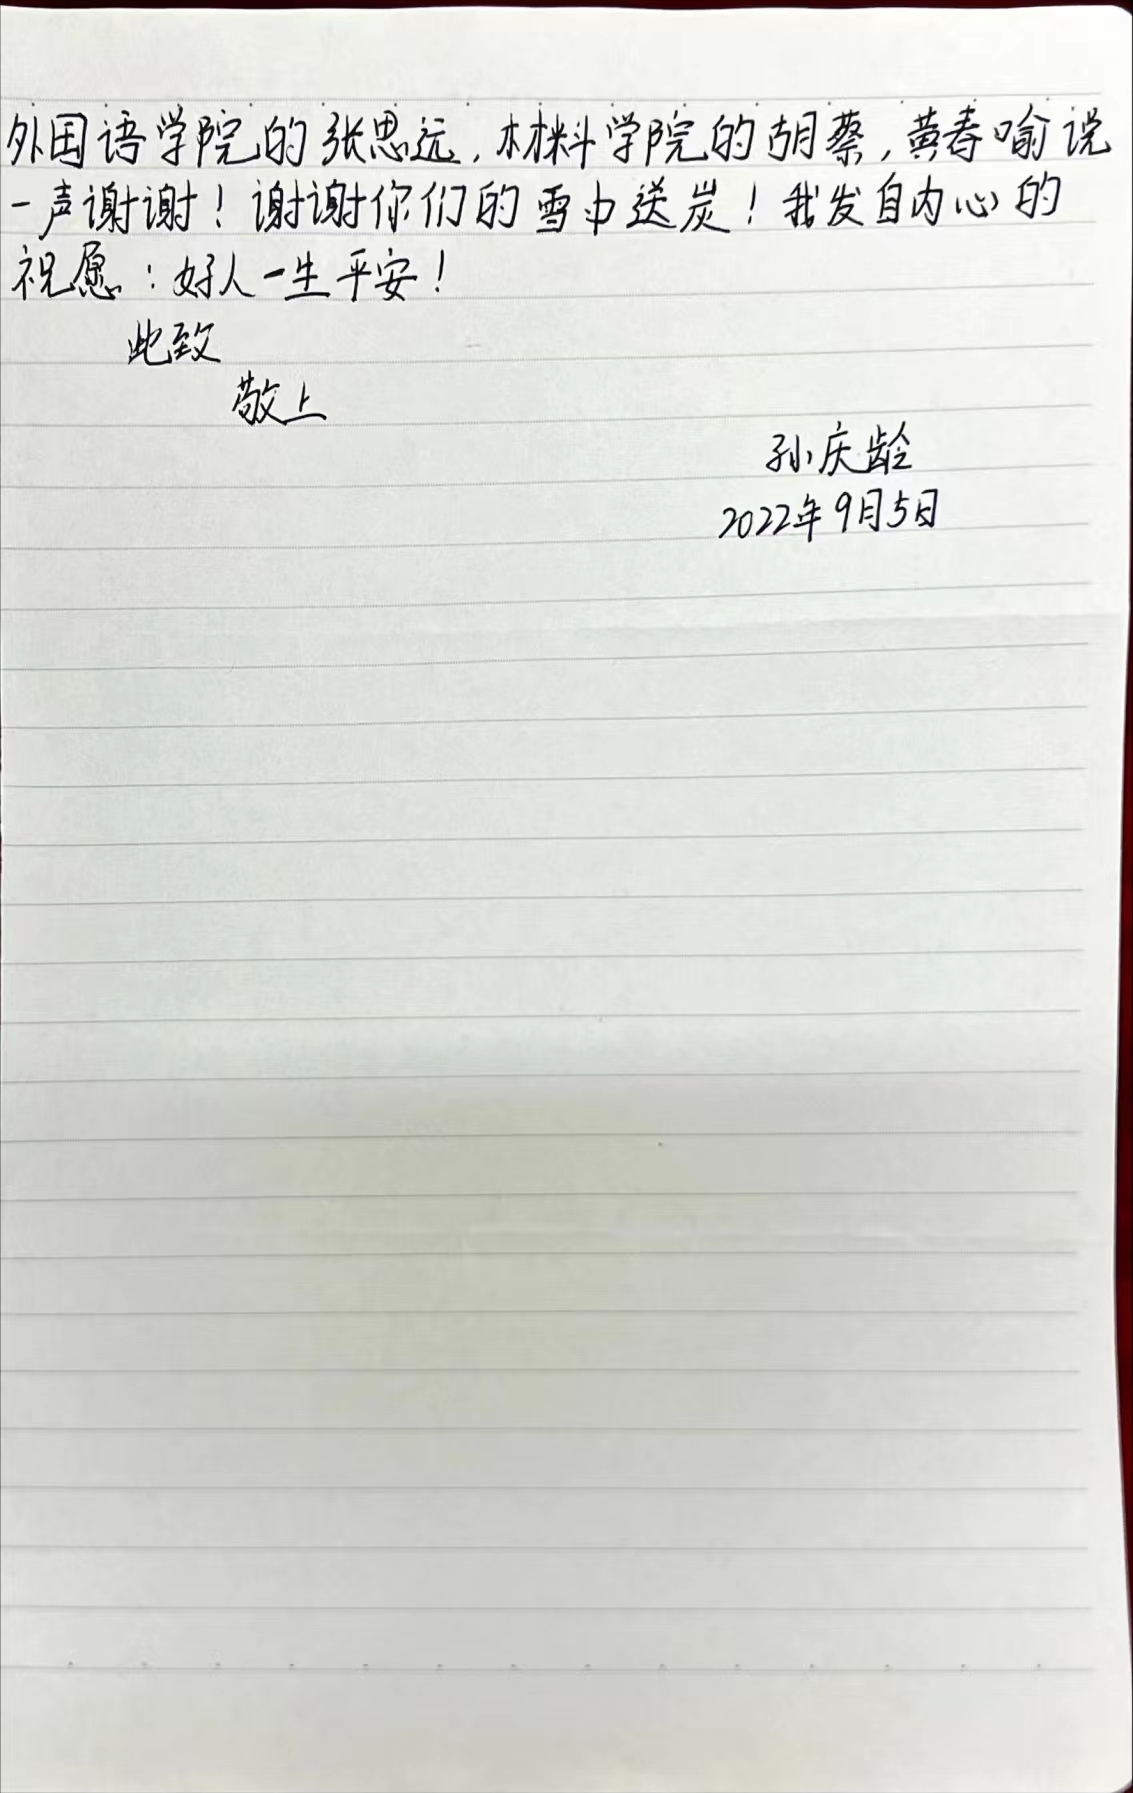 外国语学院的张思远，材料学院的胡蔡，黄春喻说
一声谢谢！谢谢你们的雪中送炭！我发自内心的
祝愿：好人一生平安！
此致
敬上
孙庆龄
2022年9月5日